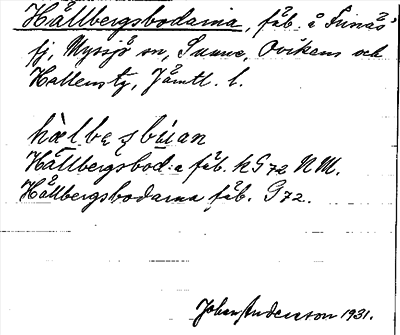 Hållbergsbodarna, fäb. å Finnäs'
fj, Myssjö sn, Sunne, Ovikens och
Hallens tg, Jämtl. l.
Hållbergsbod:a fäb. k G 72 N M.
Hållbergsbodarna fäb. G 72.
Johan Andersson 1931.